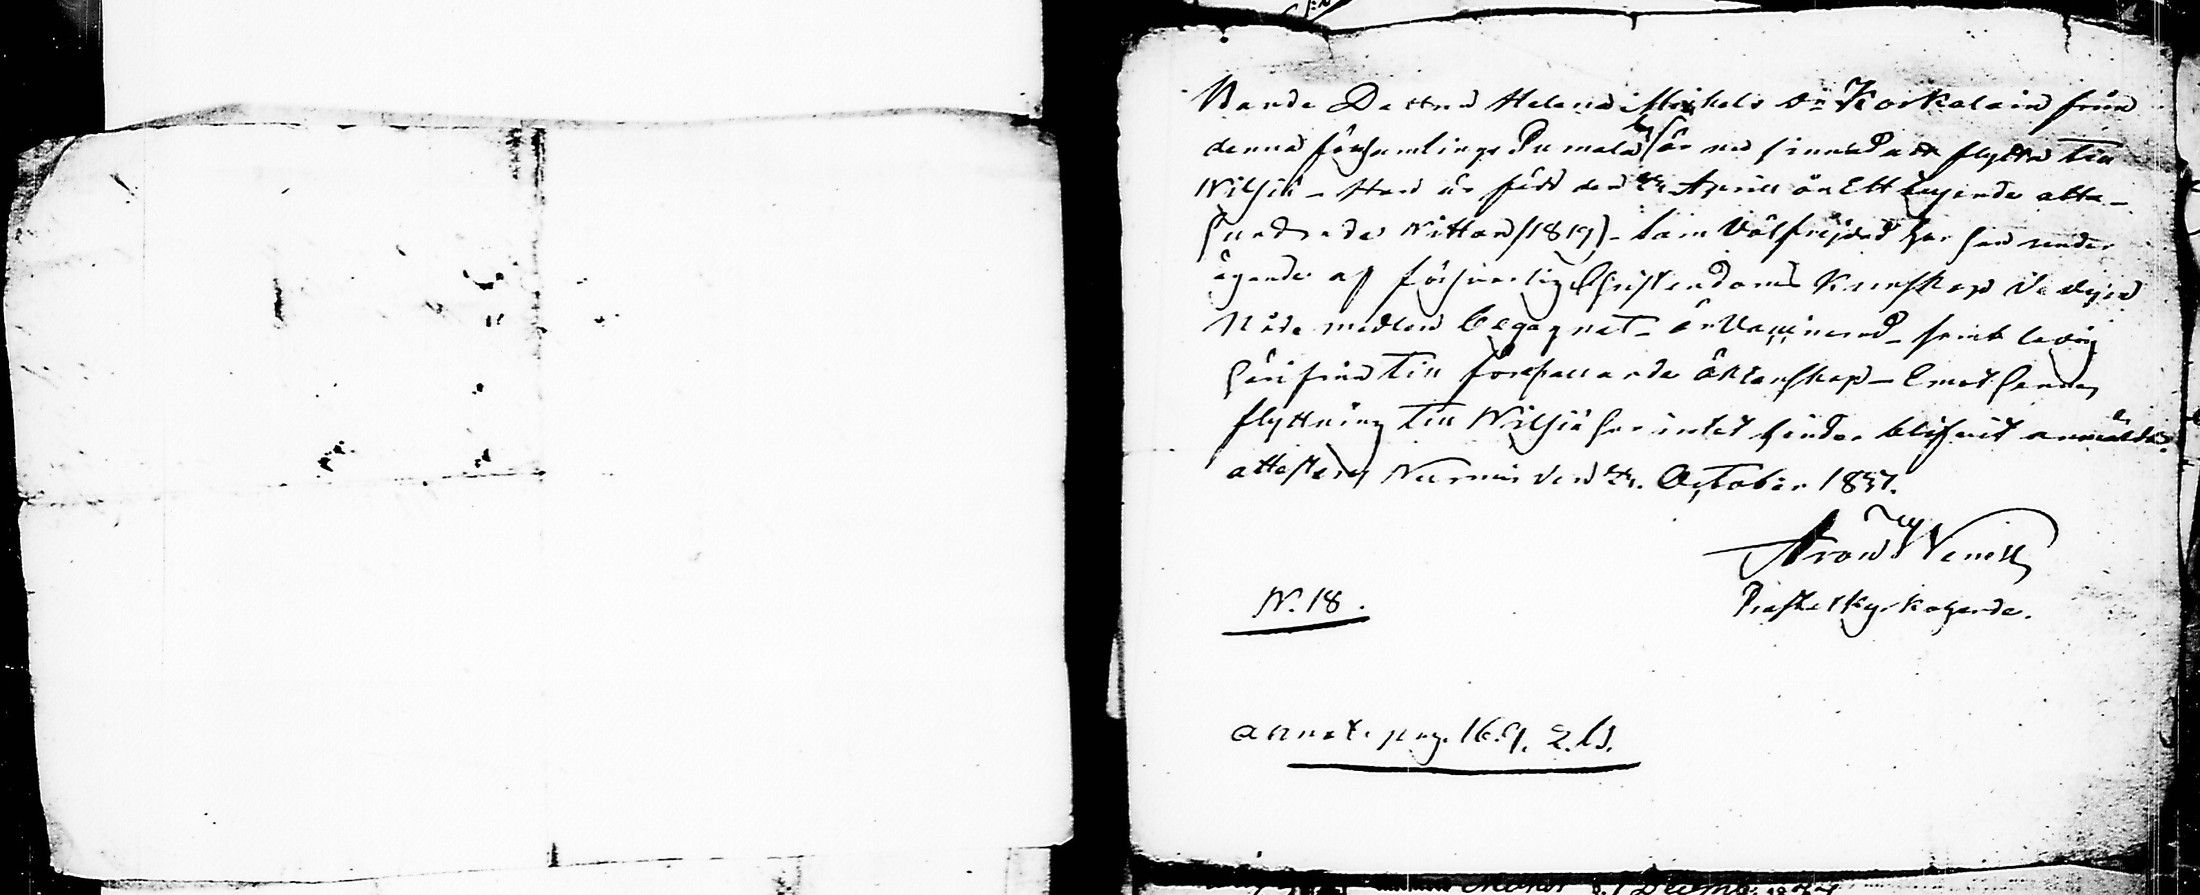 Bonde Dottren Helena Mickels dr Korkalain från
denna församlings Pumala by är nu sinnad att flytta till
Nilsiä – Hon är född den April år Ett tusende åtta-
hundrade Nitton (1819) – Sain Välfrejdad har hon under
ägande af försvarlig Christendoms Kunskap
Nåde medlen begagnat – är Vaccinerad – samt ledig
härifrån till förefallande äktenskap – Emot hennes
flyttning till Nilsiä har intet hinder blifvit anmäldt.
attesteras Nurmis den October 1837.
Aron
N. 18.
annot. pag. 169.